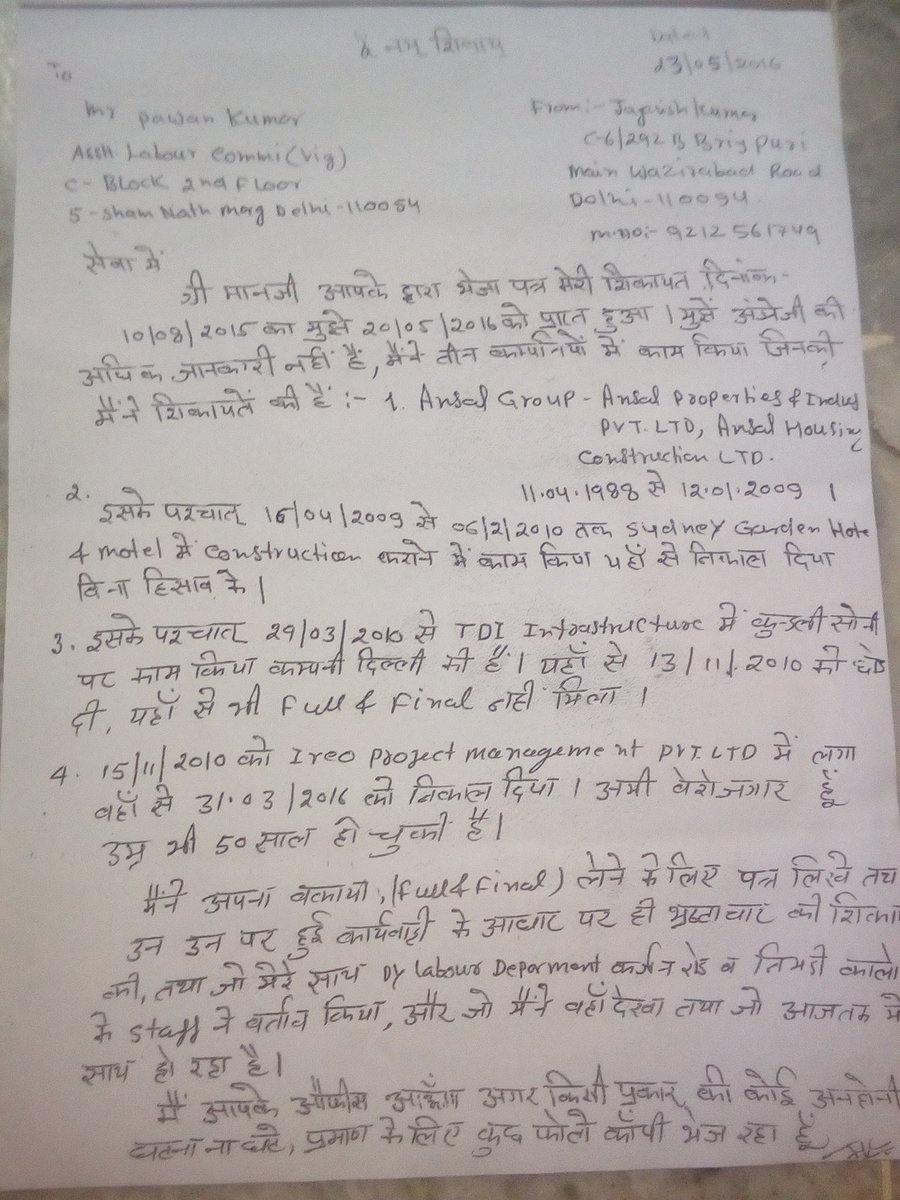 ॐ नमः शिवाय
Dated
23/05/2016
To
Mr Pawan Kumar
Asstt. Labour Commi (Vig)
C- Block 2nd Floor
5-Sham Nath Marg Delhi-110054
From:- Jagdish Kumar
C-6/292 B Brij Puri
Main Wazirabad Road
Delhi-110094
M.No:- 9212561749
सेवा में
श्री मानजी आपके द्वारा भेजा पत्र मेरी शिकायत दिनांक-
10/08/2015 का मुझे 20/05/2016 को प्राप्त हुआ । मुझे अंग्रेजी की
अधिक जानकारी नहीं है, मैंने तीन कम्पनियों में काम किया जिनकी
मैंने शिकायतें की हैं :- 1. Ansal Group - Ansal Properties & Indus
PVT. LTD, Ansal Housing
Construction LTD.
11.04.1988 से 12.01.2009 ।
2. इसके पश्चात् 16/04/2009 से 06/2/2010 तक Sydney Garden Hote
& motel में Construction कराने में काम किया यहाँ से निकाल दिया
बिना हिसाब के ।
3. इसके पश्चात् 29/03/2010 से TDI Infrastructure में कुन्डली सोनी
पर काम किया कम्पनी दिल्ली की है । यहाँ से 13/11/2010 को छोड
दी, यहाँ से भी Full & Final नहीं मिला ।
4. 15/11/2010 को Ireo Project Management PVT. LTD में लगा
वहाँ से 31.03/2016 को निकाल दिया । अभी बेरोजगार हूँ
उम्र भी 50 साल हो चुकी है ।
मैंने अपना बकाया, (Full & Final) लेने के लिए पत्र लिखे तथ
उन उन पर हुई कार्यवाही के आधार पर ही भ्रष्टाचार की शिका
की, तथा जो मेरे साथ Dy Labour Deparment कर्जन रोड व निमडी कालो
के Staff ने बर्ताव किया, और जो मैंने वहाँ देखा तथा जो आजतक मे
साथ हो रहा है ।
मैं आपके ऑफीस आऊँगा अगर किसी प्रकार की कोई अनहोनी
घटना ना घटे, प्रमाण के लिए कुछ फोटो कॉपी भेज रहा हूँ